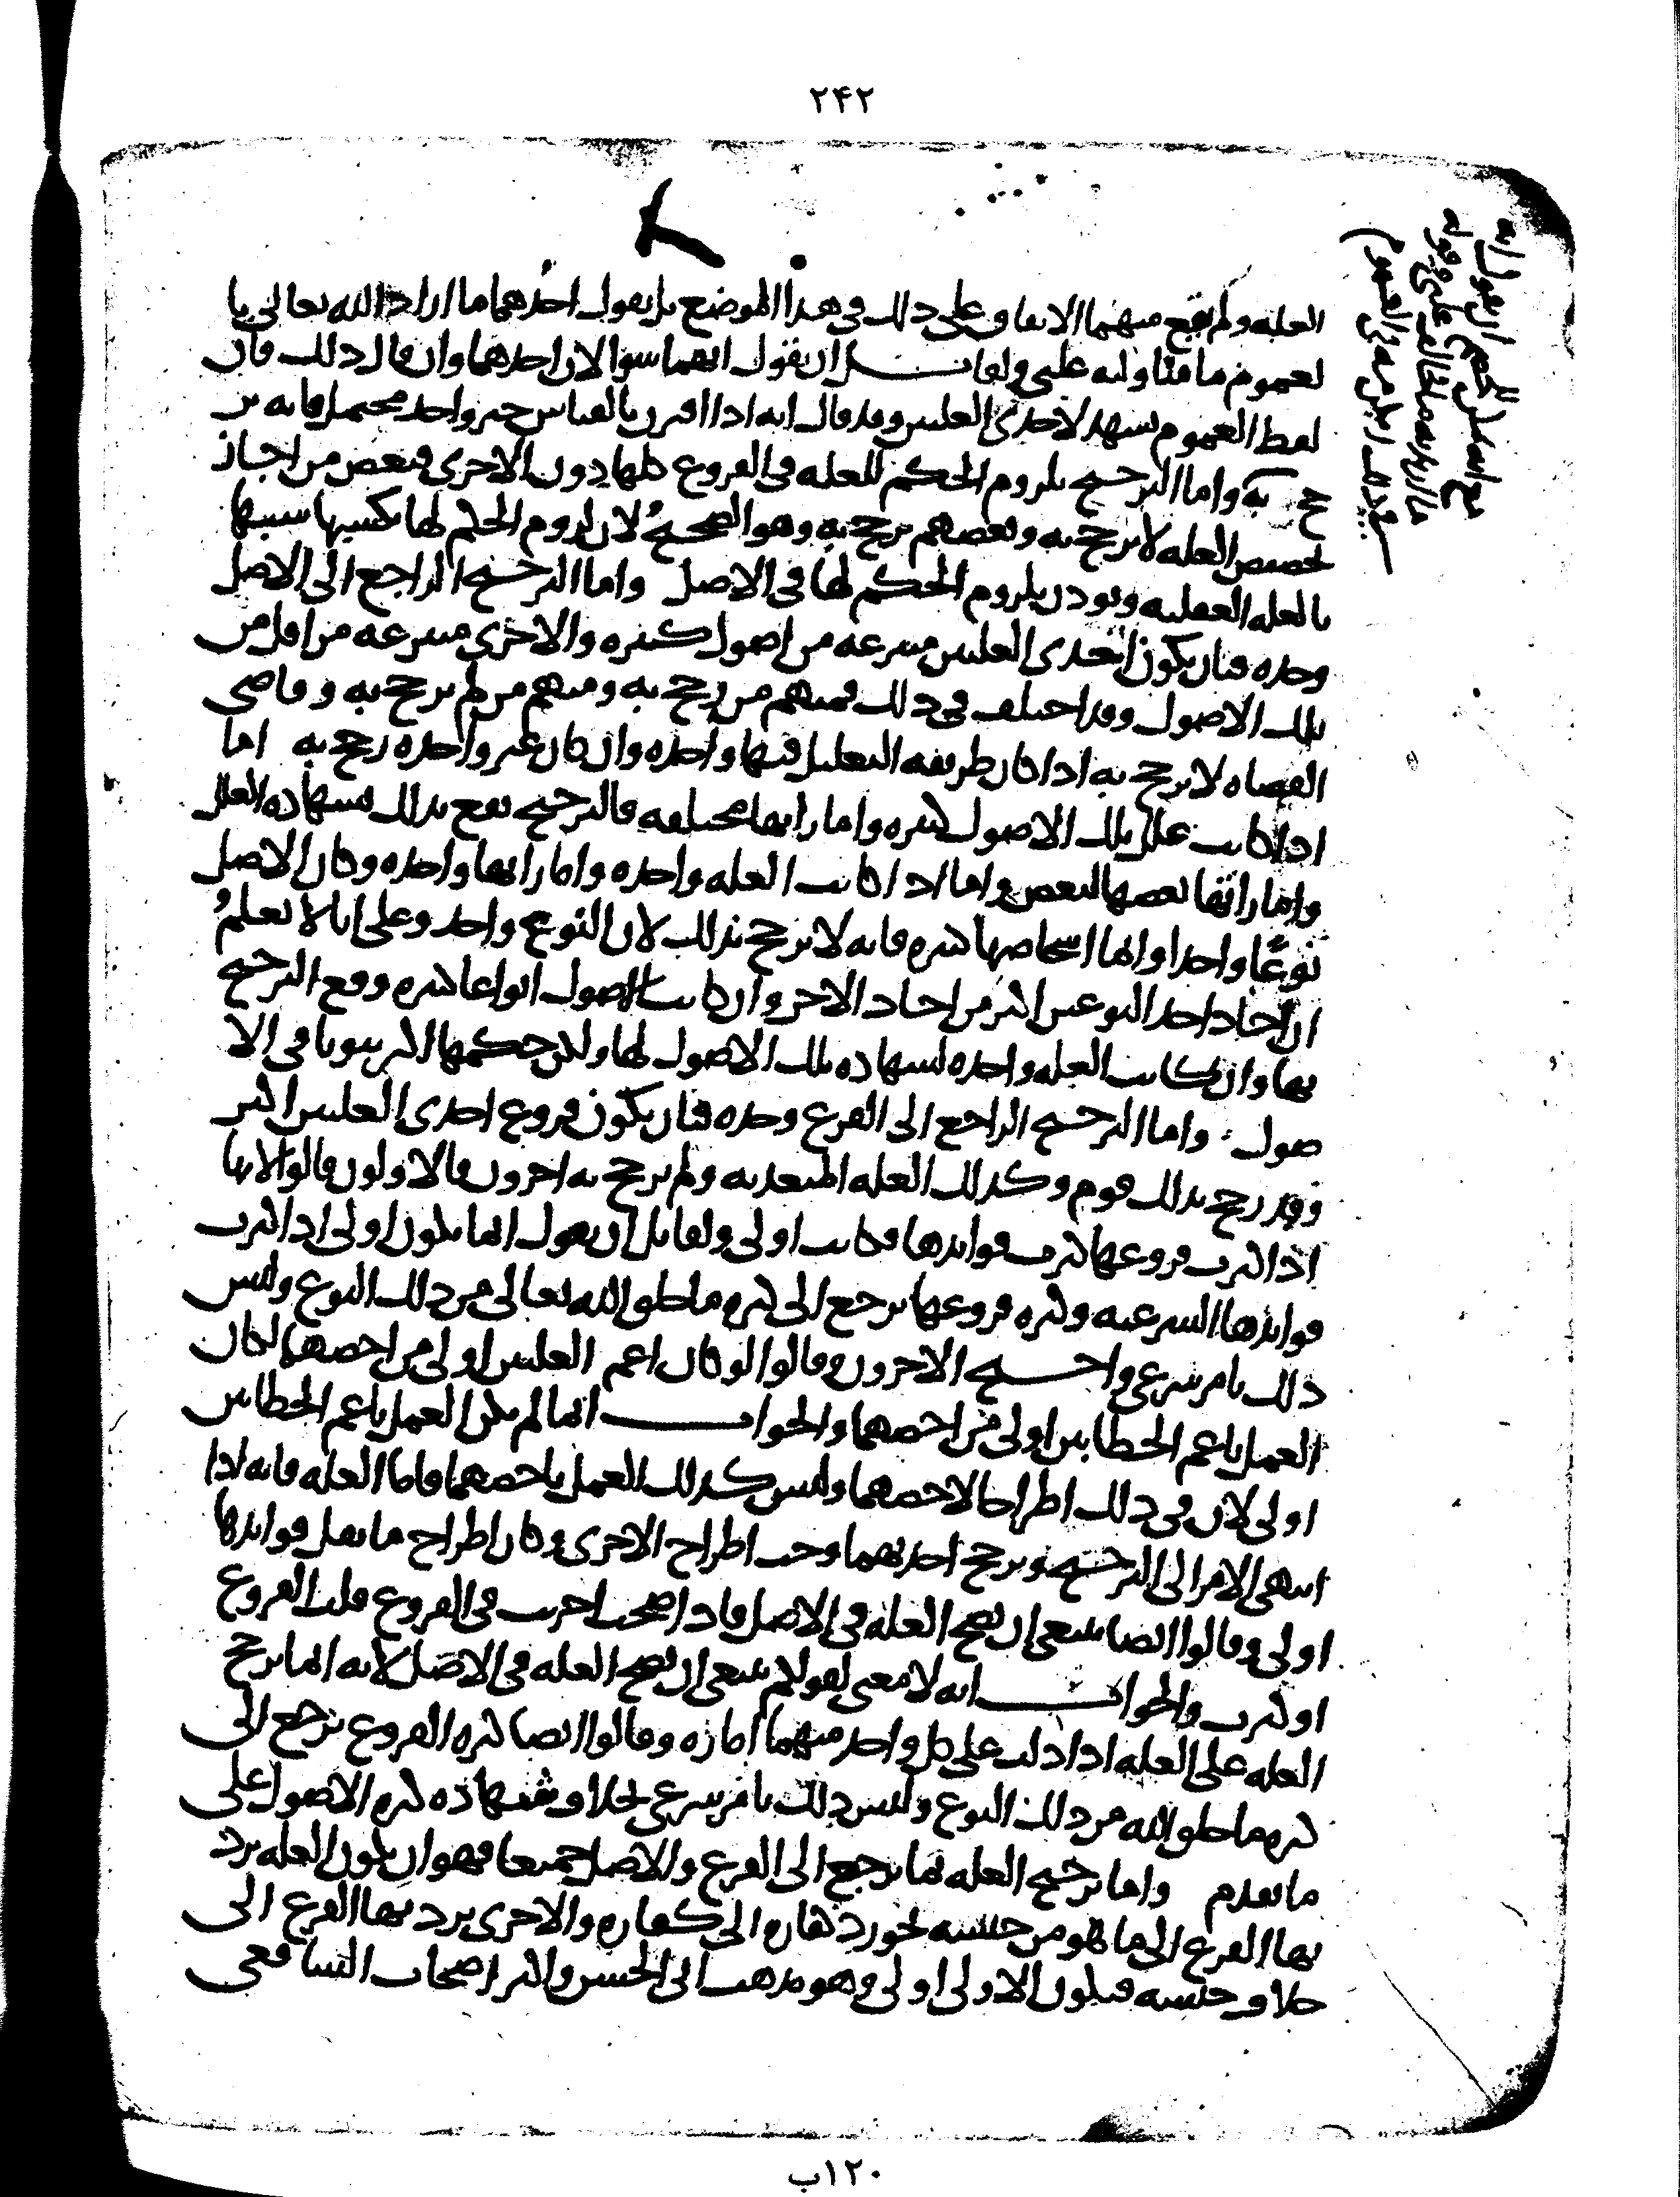 ۲۴۲
العله ولم يقع منهما الاتفاق على ذلك في هذا الموضع بل يقول احدهما ما اراد الله تعالى با
لعموم ما تتاوله علتي ولقائل ان يقول انهما سوا لان احدهما وان قال ذلك فان
لفظ العموم يشهد لاحدى العلتين وقد قال انه اذا اقترن بالقياس خبر واحد محتمل فانه ير
جح به واما الترجيح بلزوم الحكم للعله في الفروع كلها دون الاخرى فبعض من اجاز
تخصيص العله لا يرجح به وبعضهم يرجح به وهو الصحيح لان لزوم الحكم لها يكسبها شبها
بالعله العقليه ويوذن بلزوم الحكم لها في الاصل واما الترجيح الراجع الى الاصل
وحده فبان يكون احدى العلتين منتزعه من اصول كثيره والاخرى منتزعه من اقل من
تلك الاصول وقد اختلف في ذلك فمنهم من رجح به ومنهم من لم يرجح به وقاضي
القضاه لا يرجح به اذا كان طريقه التعليل فيها واحده وان كان غير واحده رجح به اما
اذا كانت علل تلك الاصول كثيره واماراتها مختلفه فالترجيح يقع بذلك لشهاده العلل
واماراتها بعضها لبعض واما اذا كانت العله واحده واماراتها واحده وكان الاصل
نوعا واحدا وانما اشخاصها كثيره فانه لا يرجح بذلك لان النوع واحد وعلى انا لا نعلم
ان احاد احد النوعين اكثر من احاد الاخر وان كانت الاصول انواعا كثيره وقع الترجيح
بها وان كانت العله واحده لشهاده تلك الاصول لها ولان حكمها اكثر ثبوتا في الا
صول واما الترجيح الراجع الى الفرع وحده فبان يكون فروع احدى العلتين اكثر
وقد رجح بذلك قوم وكذلك العله المتعديه ولم يرجح به اخرون فالاولون قالوا لانها
اذا كثرت فروعها كثرت فوائدها فكانت اولى ولقائل ان يقول انما يكون اولى اذا كثرت
فوائدها الشرعيه وكثره فروعها يرجع الى كثره ما خلق الله تعالى من ذلك النوع وليس
ذلك بامر شرعي واحتج الاخرون وقالوا لو كان اعم العلتين اولى من اخصهما لكان
العمل باعم الخطابين اولى من اخصهما والجواب انما لم يكن العمل باعم الخطابين
اولى لان في ذلك اطراحا لاخصهما وليس كذلك العمل باخصهما فاما العله فانه اذا
انتهى الامر الى الترجيح وترجح احديهما وجب اطراح الاخرى وكان اطراح ما تقل فوائدها
اولى وقالوا ايضا ينبغي ان تصح العله في الاصل فاذا صحت اجريت في الفروع قلت الفروع
او كثرت والجواب انه لا معنى لقولكم ينبغي ان تصح العله في الاصل لانه انما يرجح
العله على العله اذا دلت على كل واحد منهما اماره وقالوا ايضا كثره الفروع ترجع الى
كثره ما خلق الله من ذلك النوع وليس ذلك بامر شرعي بخلاف شهاده كثره الاصول على
ما تقدم واما ترجيح العله بما يرجع الى الفرع والاصل جميعا فهو ان يكون العله يرد
بها الفرع الى ما هو من جنسه نحو رد كفاره الى كفاره والاخرى يرد بها الفرع الى
خلاف جنسه فيكون الاولى اولى وهو مذهب ابي الحسن واكثر اصحاب الشافعي
۱۲۰ب